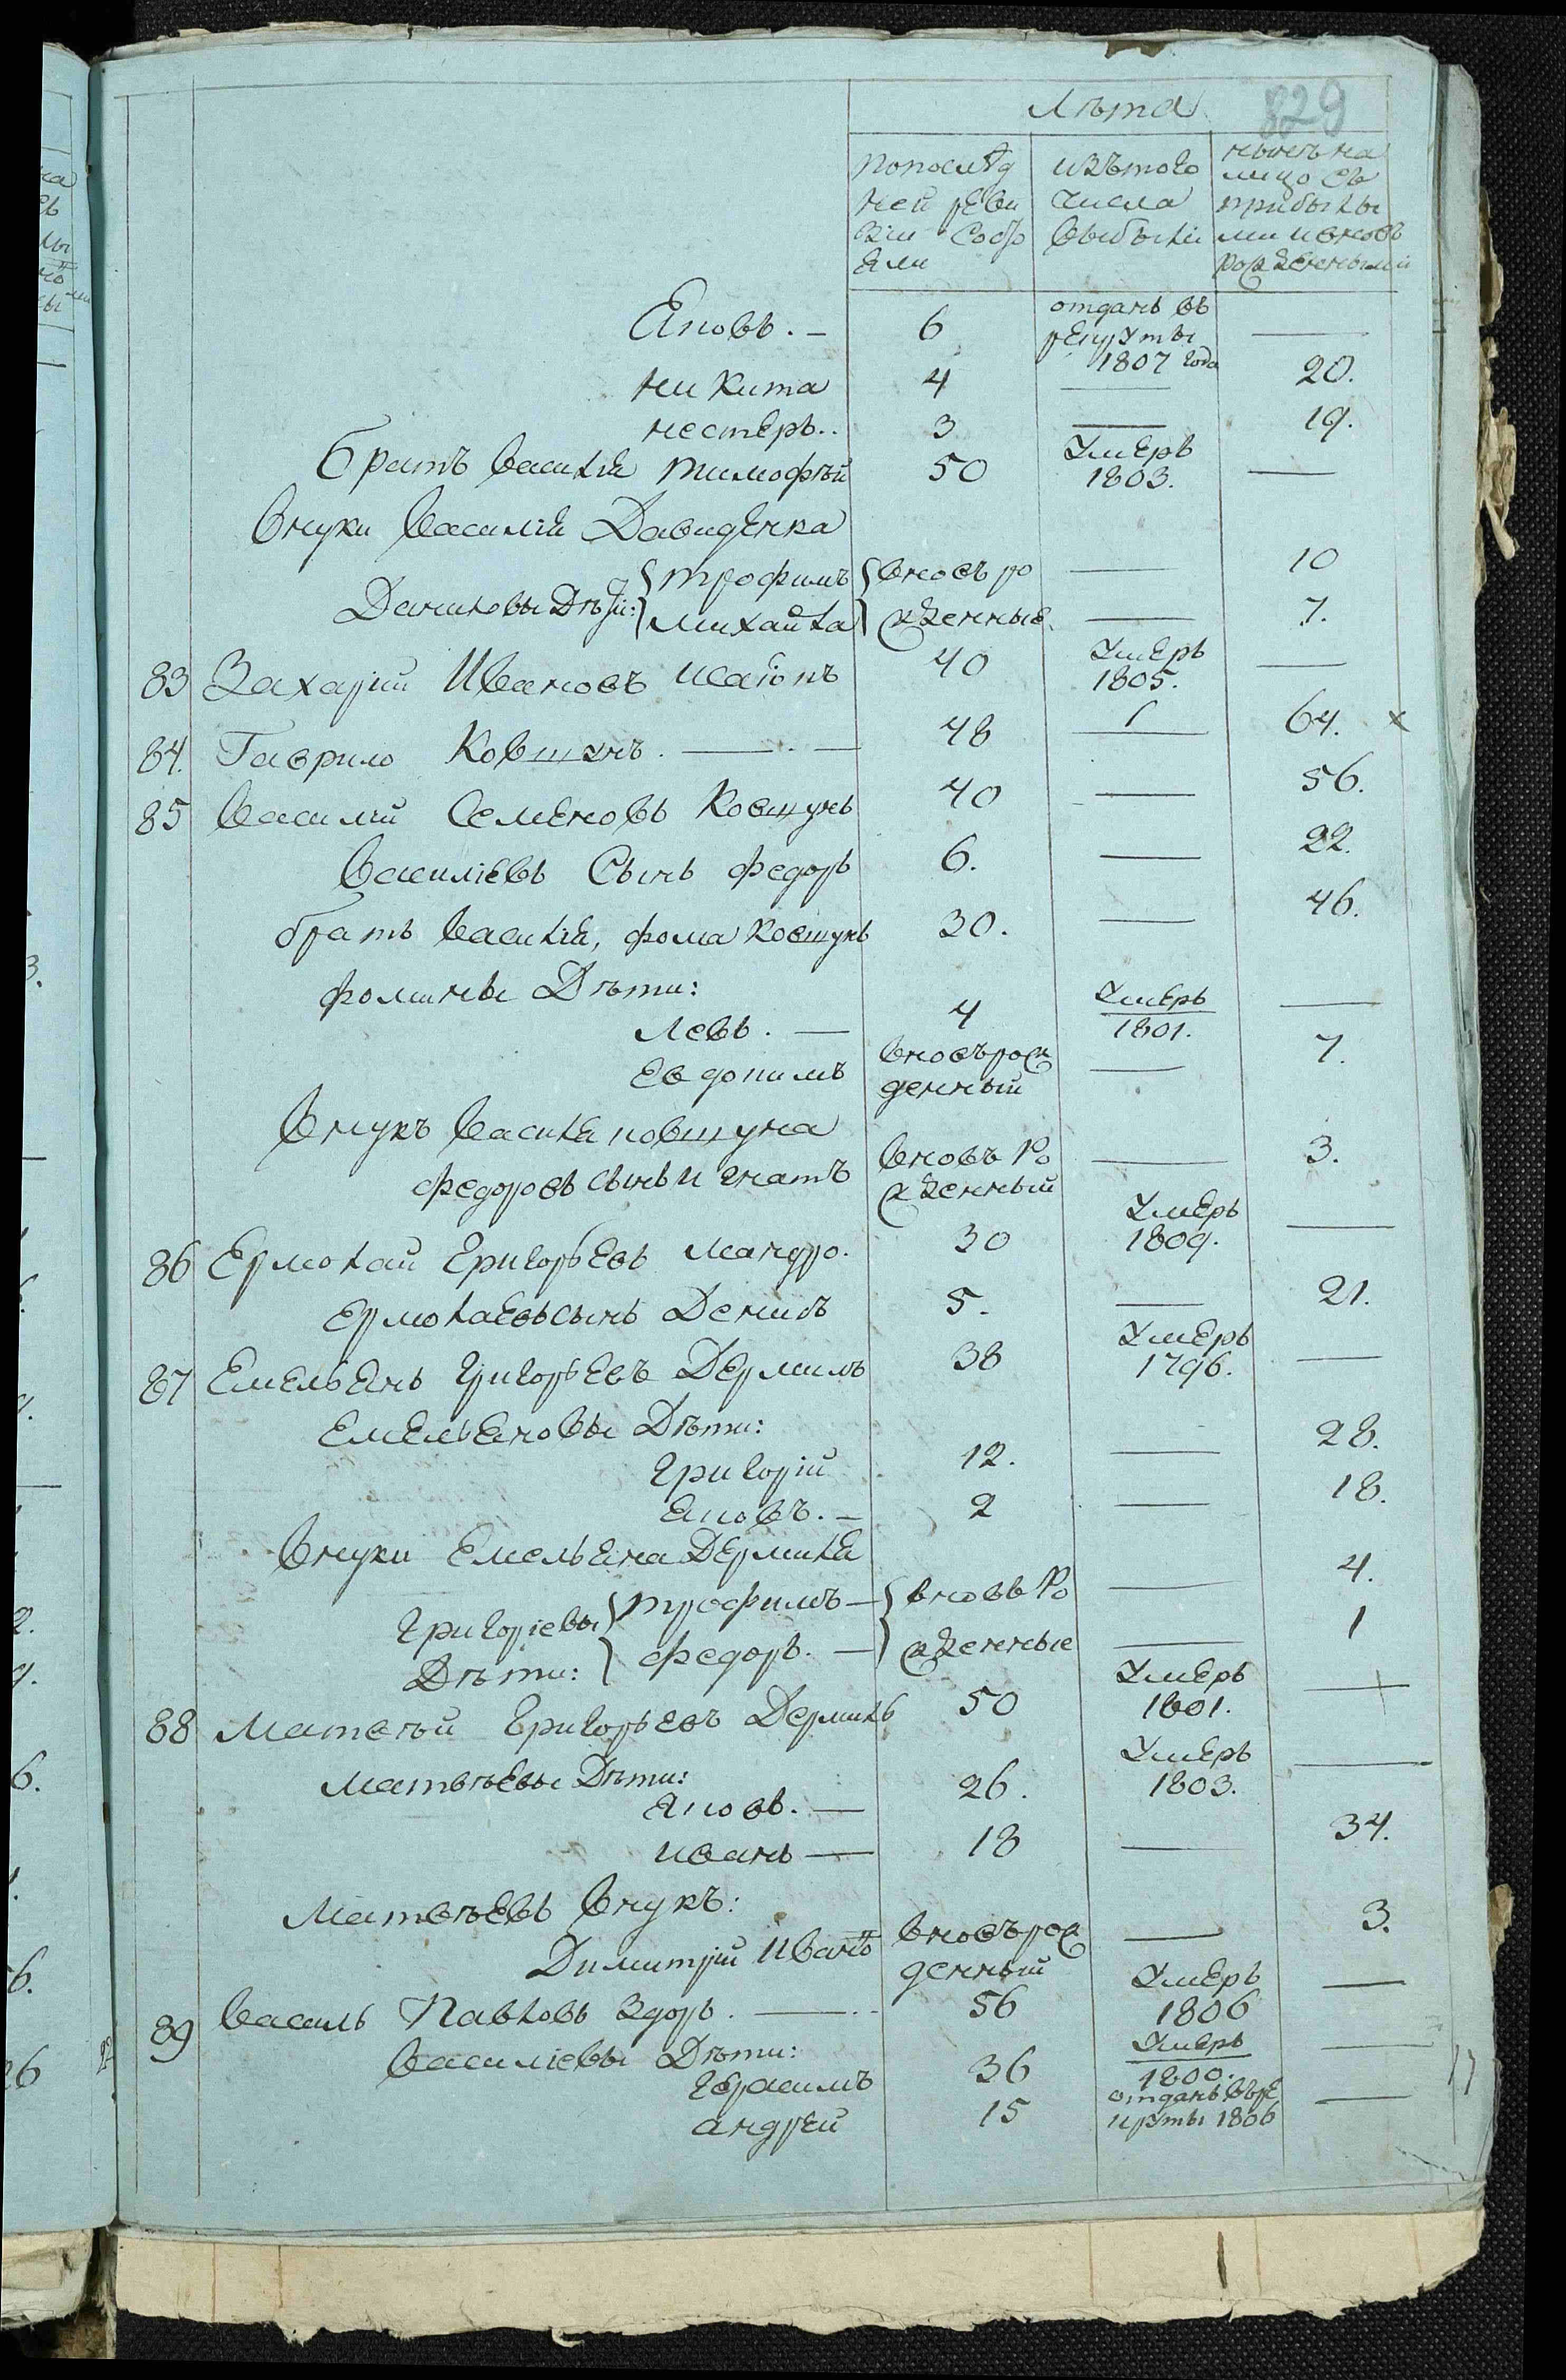 829
Лѣта
попослѣд ней реви зіи состо яли
изътого числа выбыли
нынѣ на лицо съ прибылы ми ивновъ рожденными
Яковъ. — 6 отданъ въ рекруты 1807 года —
Никита 4 — 20.
Нестеръ.. 3 — 19.
Братъ Василія Тимофѣй 50 Умеръ 1803. —
Внуки Василія Давиденка
Даниловы Дѣти: Трофимъ вновъ ро — 10
Михайла жденные — 7.
83 Захарій Ивановъ 40 Умеръ 1805. —
84. Гаврило Ковтунъ. — 48 — 64. х
85 Василій Семеновъ Ковтунъ 40 — 56.
Василіевъ Сынъ Федоръ 6. — 22.
братъ Василія, Фома Ковтунъ 30. — 46.
Фомины Дѣти:
Левъ. — 4 Умеръ 1801. —
Евдокимъ вновърож денный — 7.
Внукъ Василя Ковтуна
Федоровъ сынъ Игнатъ вновъ Ро жденный — 3.
86 Ермолай Григорьевъ Мандро. 30 Умеръ 1809. —
Ермолаевъ сынъ Денисъ 5. — 21.
87 Емельянъ Григорьевъ Дермиль 38 Умеръ 1796. —
Емельяновы Дѣти:
Григорій 12. — 28.
Яковъ. — 2 — 18.
Внуки Емельяна Дермиля
Григоріевы Трофимъ — вновъ Ро — 4.
Дѣти: Федоръ. — жденные — 1
88 Матвѣй Григорьевъ Дермиль 50 Умеръ 1801. —
Матвѣевы Дѣти:
Яковъ. — 26. Умеръ 1803. —
Иванъ — 18 — 34.
Матвѣевъ Внукъ:
Димитрій Ивановъ вновърож денный — 3.
89 Василь Павловъ Здоръ. — 56 Умеръ 1806 —
Василіевы Дѣти:
Герасимъ 36 Умеръ 1800. —
Андрей 15 отданъ въре круты 1806 —